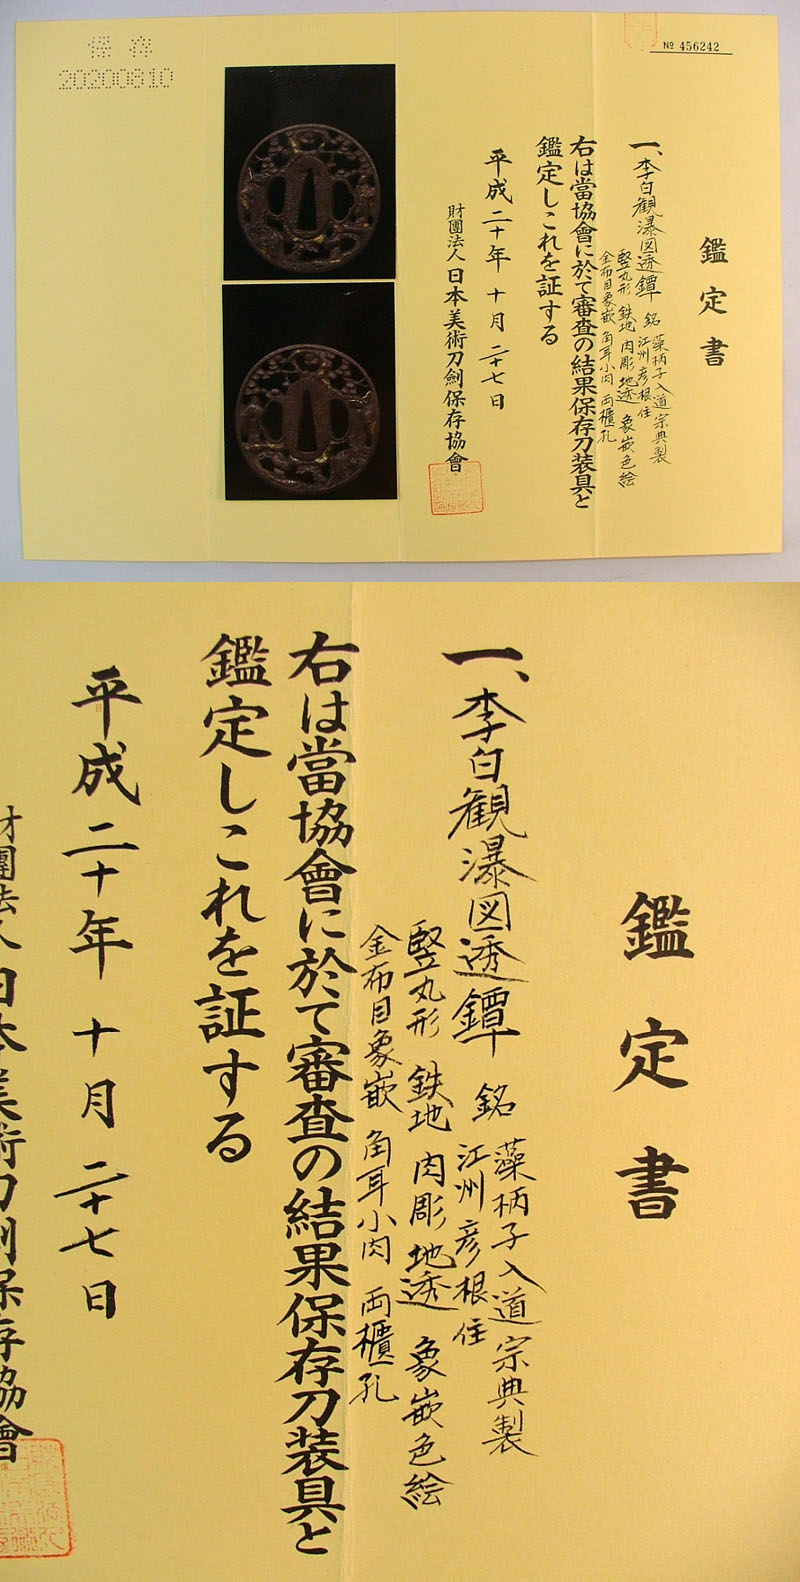 保存
20200810
№ 456242
鑑定書
一、李白観瀑図透鐔 銘 藻柄子入道宗典製
江州彦根住
竪丸形 鉄地 肉彫地透 象嵌色絵
金布目象嵌 角耳小肉 両櫃孔
右は當協會に於て審査の結果保存刀装具と
鑑定しこれを証する
平成二十年 十月 二十七日
財團法人 日本美術刀劍保存協會
鑑定書
一、李白観瀑図透鐔 銘 藻柄子入道宗典製
江州彦根住
竪丸形 鉄地 肉彫地透 象嵌色絵
金布目象嵌 角耳小肉 両櫃孔
右は當協會に於て審査の結果保存刀装具と
鑑定しこれを証する
平成二十年 十月 二十七日
財團法人 日本美術刀劍保存協會